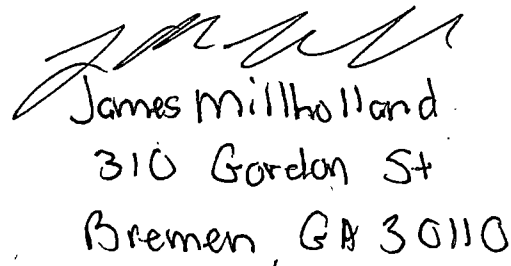 James Millholland
310 Gordon St
Bremen, GA 30110